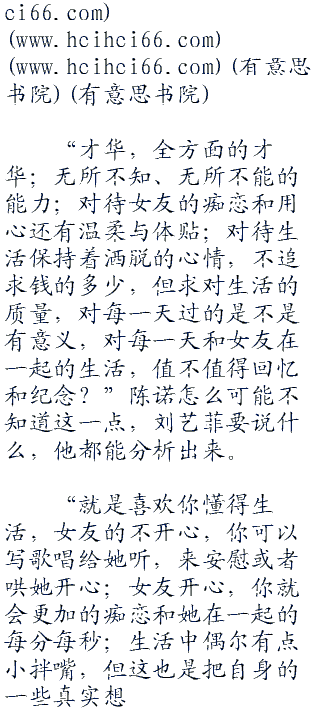 ci66.com)
(www.hcihci66.com)
(www.hcihci66.com)(有意思
书院)(有意思书院)
“才华，全方面的才
华；无所不知、无所不能的
能力；对待女友的痴恋和用
心还有温柔与体贴；对待生
活保持着洒脱的心情，不追
求钱的多少，但求对生活的
质量，对每一天过的是不是
有意义，对每一天和女友在
一起的生活，值不值得回忆
和纪念？”陈诺怎么可能不
知道这一点，刘艺菲要说什
么，他都能分析出来。
“就是喜欢你懂得生
活，女友的不开心，你可以
写歌唱给她听，来安慰或者
哄她开心；女友开心，你就
会更加的痴恋和她在一起的
每分每秒；生活中偶尔有点
小拌嘴，但这也是把自身的
一些真实想